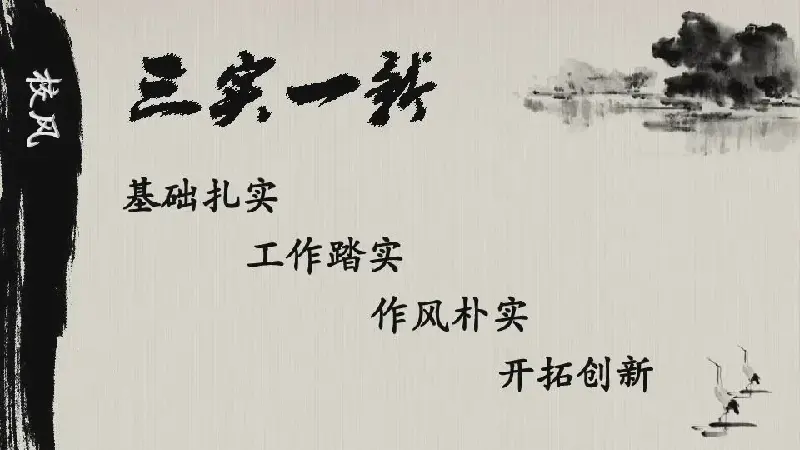 校风
三实一新
基础扎实
工作踏实
作风朴实
开拓创新